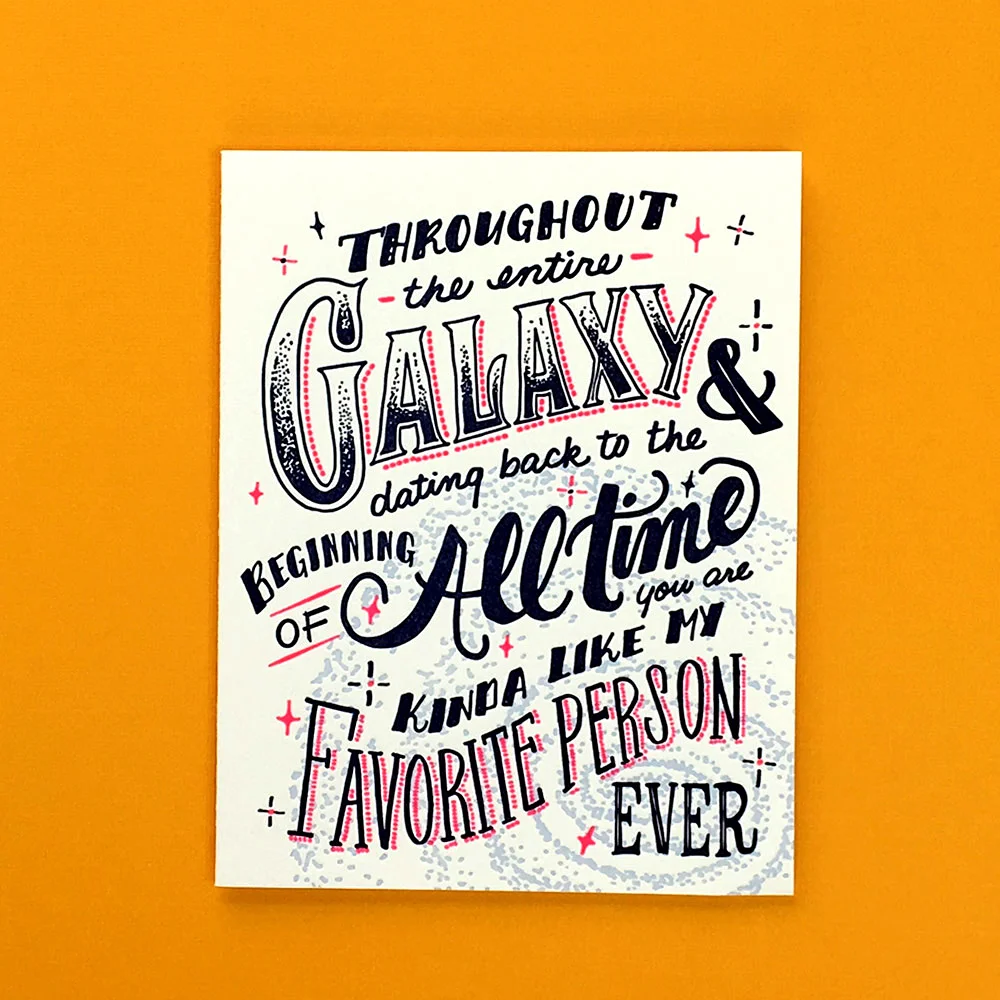 THROUGHOUT
the entire
GALAXY &
dating back to the
BEGINNING
OF All time
you are
KINDA LIKE MY
FAVORITE PERSON
EVER